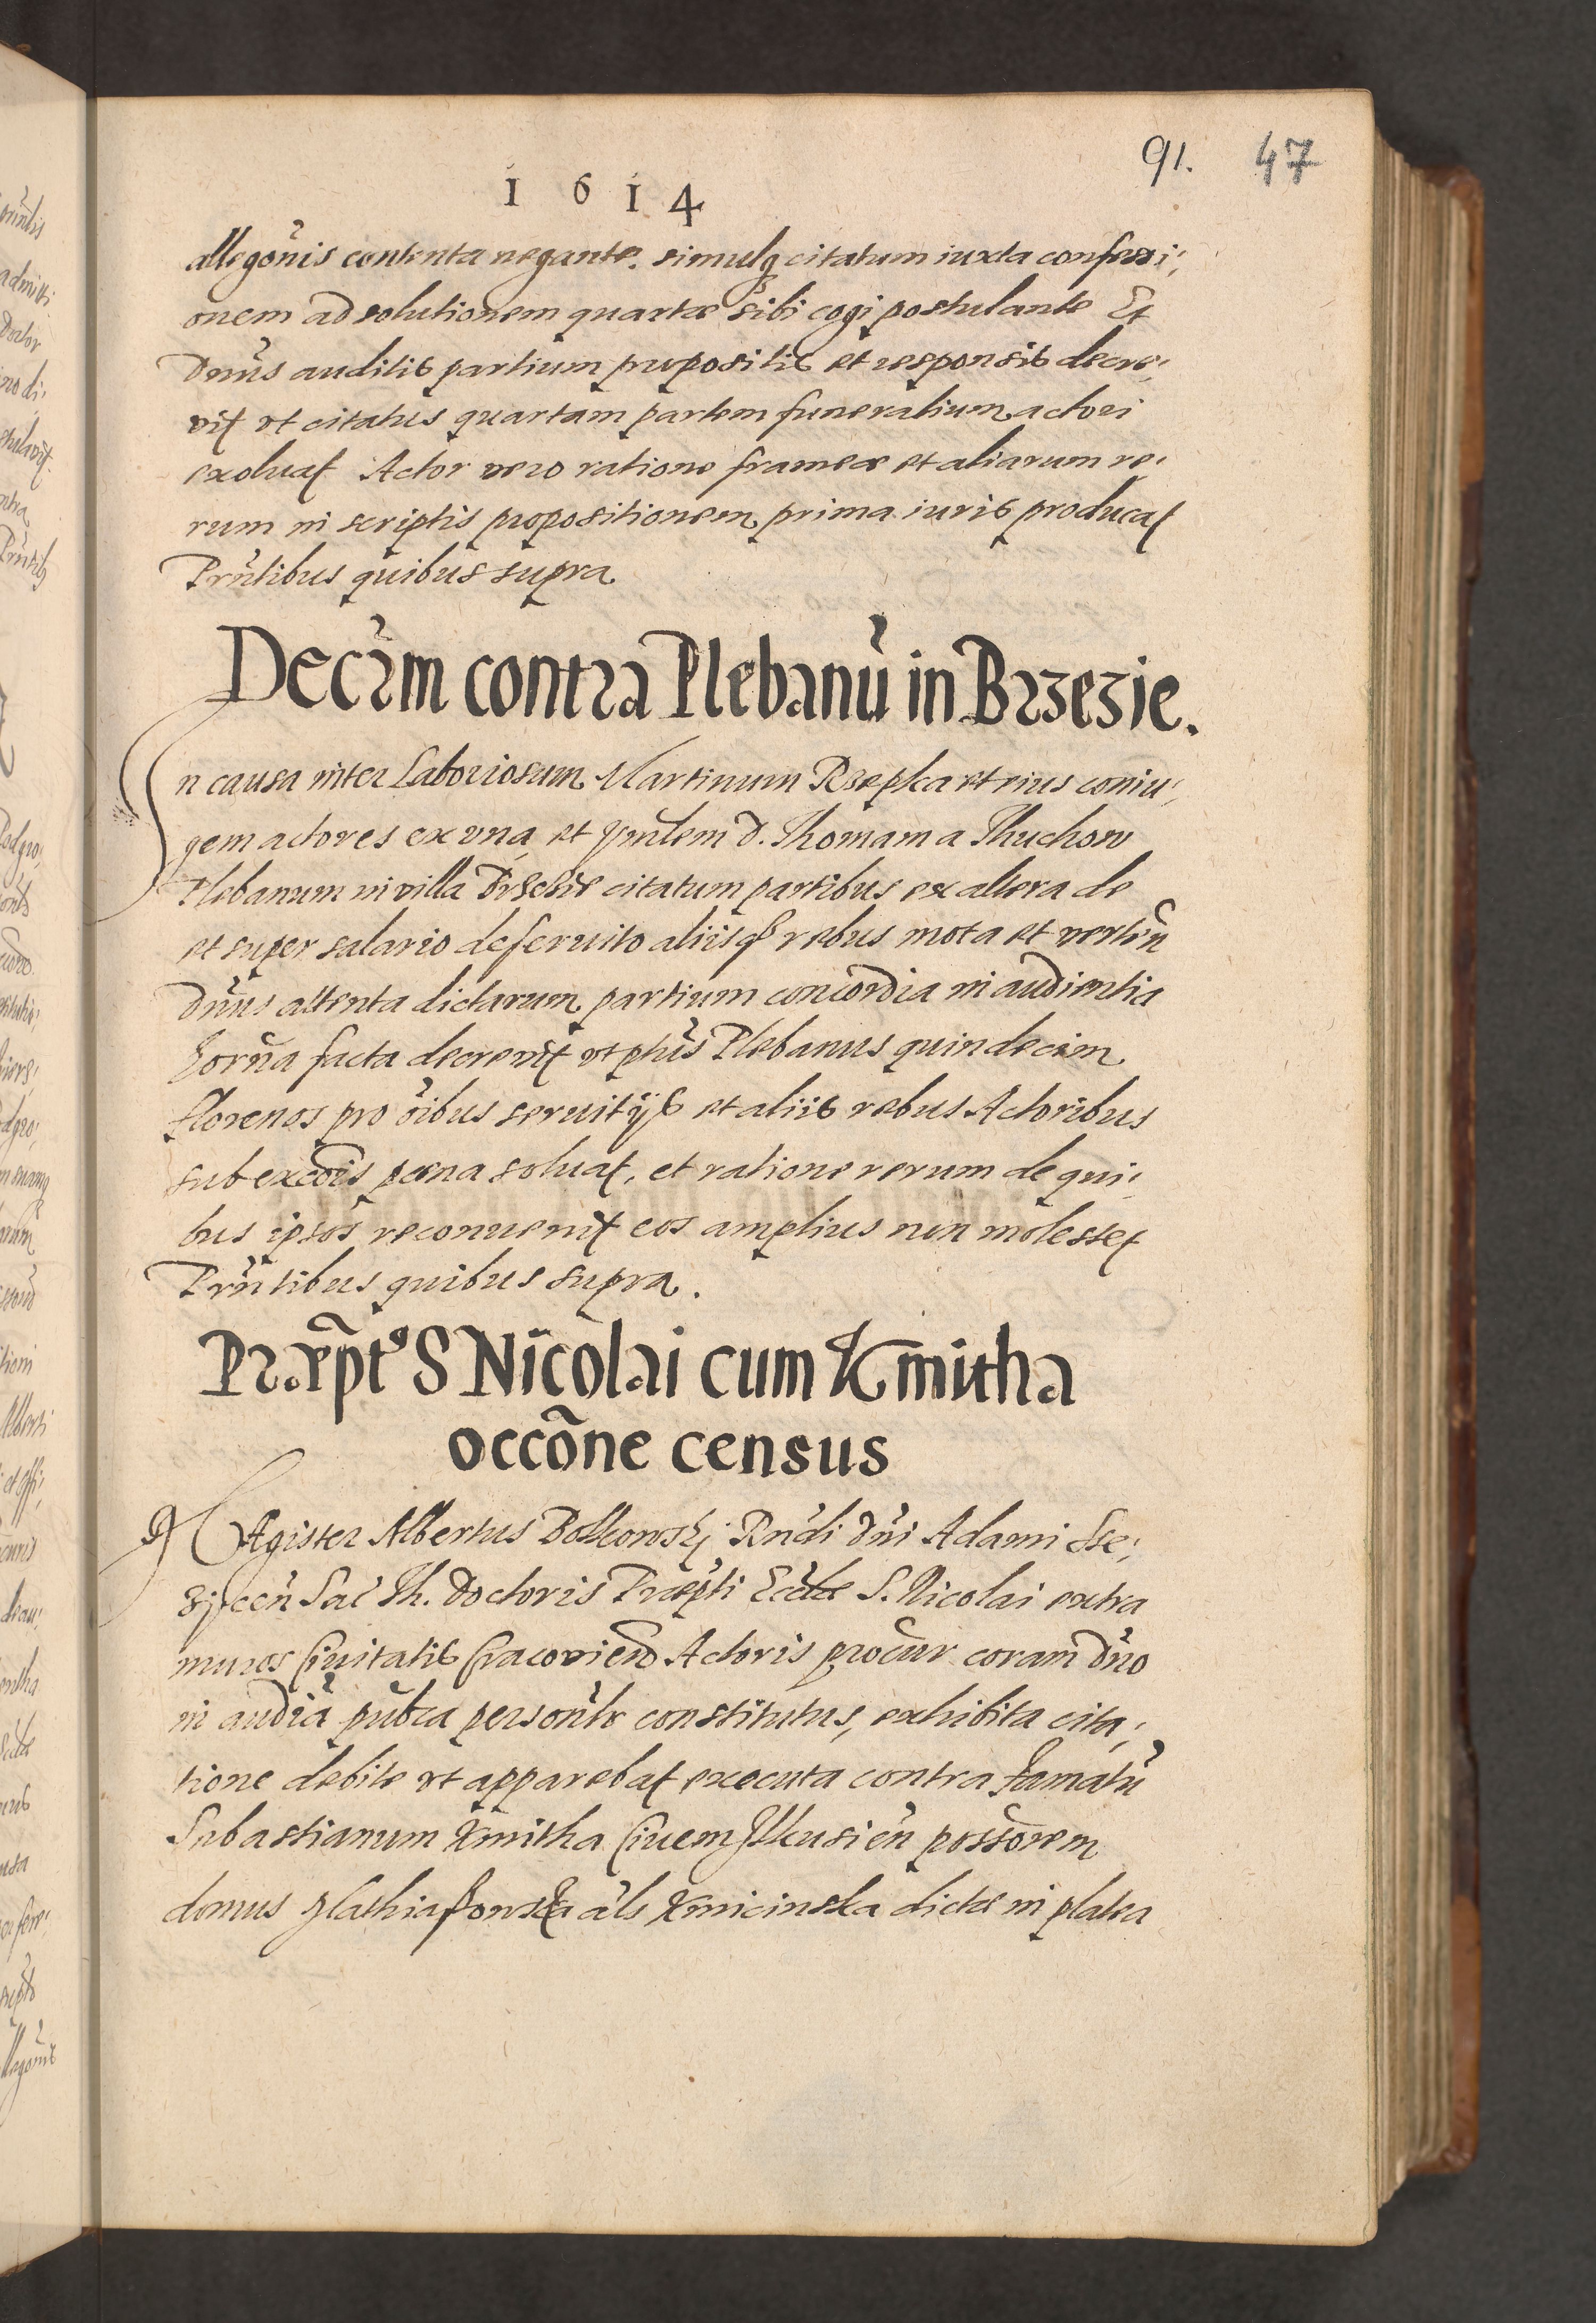 91. 47
1614
allegõnis contenta negante. simulq citatum iuxta confessi:,
onem ad solutionem quartæ sibi cogi postulante Et
Dnũs auditis partium propositis et responsis decre:,
vit vt citatus quartam partem funeralium actori
exoluat Actor vero ratione frameæ et aliarum re:
rum in scriptis propositionem prima iuris producat
Prñtibus quibus supra
Decrm contra Plebanũ in Brzezie.
In causa inter Laboriosum Martinum Rzepka et eius coniu:,
gem actores ex vna et D. Thomam a Thuchow
Plebanum in villa citatum partibus ex altera de
et super salario deseruito aliisq rebus mota et verteñ
Dnũs attenta dictarum partium concordia in audientia
facta decrevit vt Plebanus quindecim
florenos pro õibus seruitijs et aliis rebus Actoribus
sub excõis pœna soluat, et ratione rerum de qui:,
bus ipsos reconuenit eos amplius non molestet
Prñtibus quibus supra.
Præp̃t9 S Nicolai cum Kmitha
occõne census
MAgister Albertus Rñdi Dñi Adami
Sac Th. Doctoris Præpti Eccłæ S. Nicolai extra
muros Ciuitatis Cracovieñ Actoris procur coram Dño
in audiã pubca personlr constitutus, exhibita cita:,
tione debite vt apparebat executa contra famatũ
Sabastianum Kmitha Ciuem Ilkusieñ possorem
domus als Kmicinska dictæ in platea